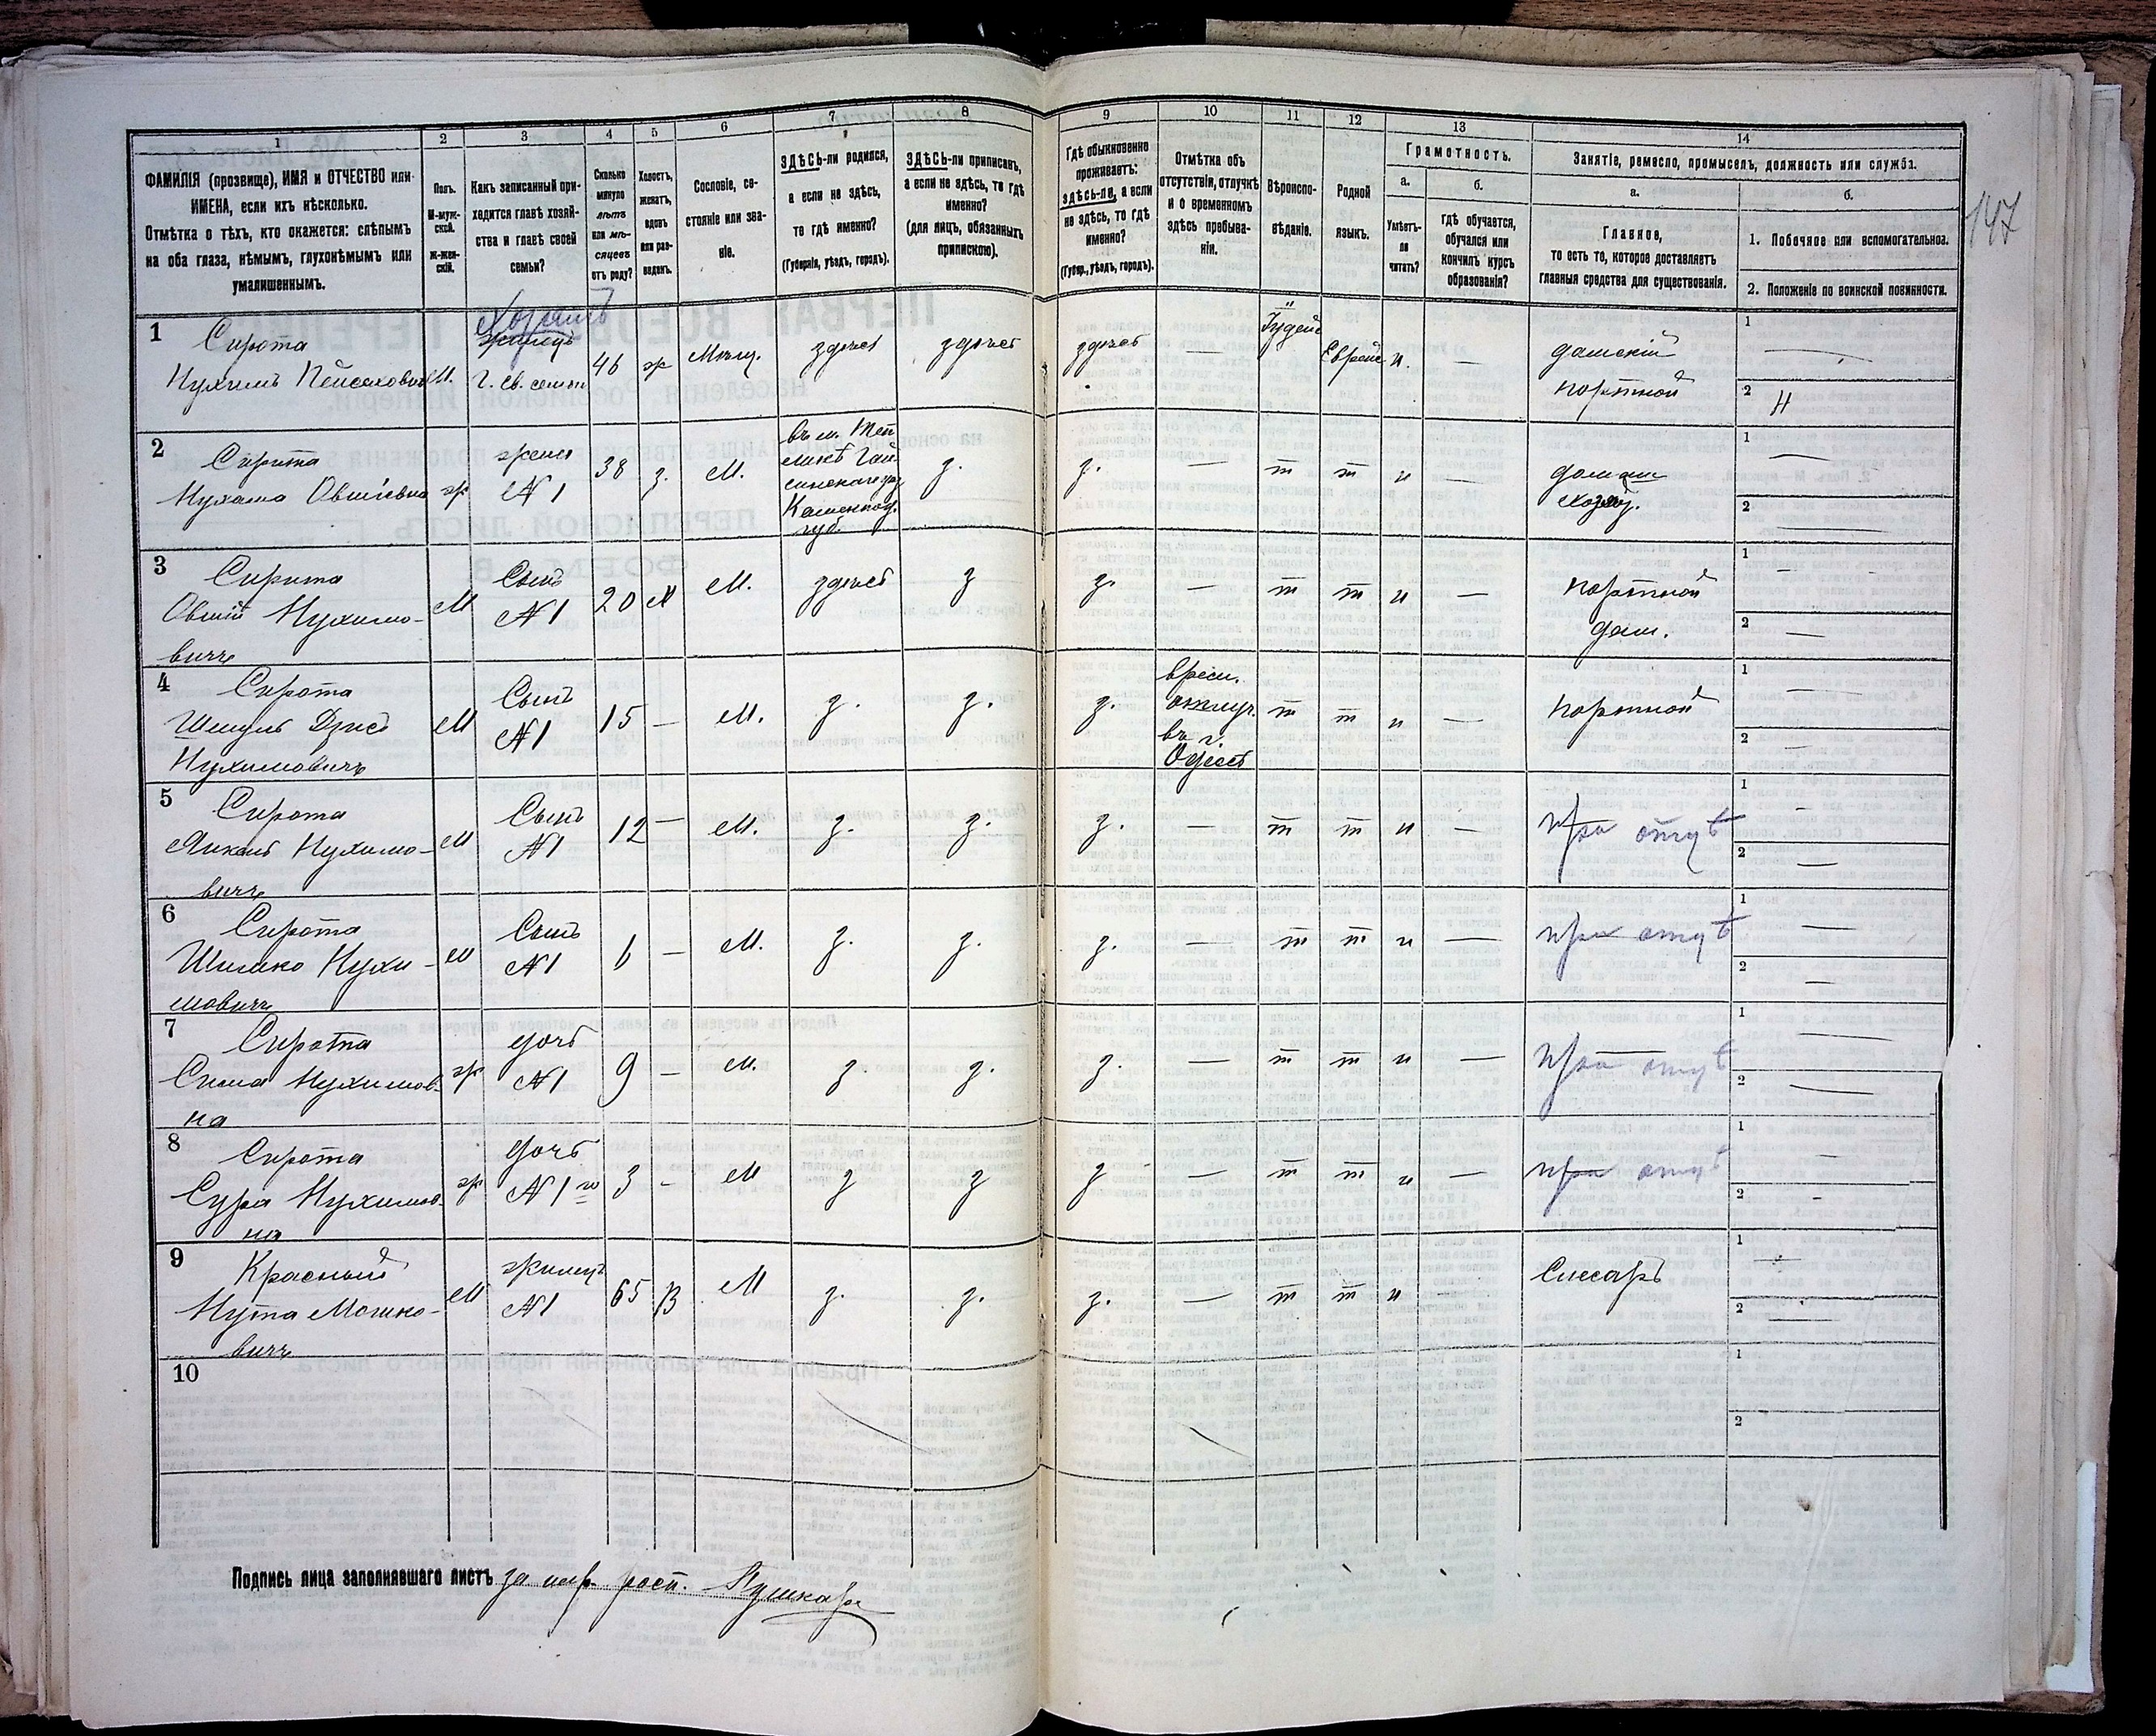 1 2 3 4 5 6 7 8 9 10 11 12 13 14
ФАМИЛІЯ (прозвище), ИМЯ и ОТЧЕСТВО или
ИМЕНА, если ихъ нѣсколько.
Отмѣтка о тѣхъ, кто окажется: слѣпымъ
на оба глаза, нѣмымъ, глухонѣмымъ или
умалишеннымъ.
Полъ.
М-муж-
ской.
Ж-жен-
скій.
Какъ записанный при-
ходится главѣ хозяй-
ства и главѣ своей
семьи?
Сколько
минуло
лѣтъ
или мѣ-
сяцевъ
отъ роду?
Холостъ,
женатъ,
вдовъ
или раз-
веденъ.
Сословіе, со-
стояніе или зва-
ніе.
ЗДѢСЬ-ли родился,
а если не здѣсь,
то гдѣ именно?
(Губернія, уѣздъ, городъ).
ЗДѢСЬ-ли приписанъ,
а если не здѣсь, то гдѣ
именно?
(для лицъ, обязанныхъ
припискою).
Гдѣ обыкновенно
проживаетъ:
здѣсь-ли, а если
не здѣсь, то гдѣ
именно?
(Губер., уѣздъ, городъ).
Отмѣтка объ
отсутствіи, отлучкѣ
и о временномъ
здѣсь пребыва-
ніи.
Вѣроиспо-
вѣданіе.
Родной
языкъ.
Грамотность.
а.
Умѣетъ-
ли
читать?
б.
гдѣ обучается,
обучался или
кончилъ курсъ
образованія?
Занятіе, ремесло, промыселъ, должность или служба.
а.
Главное,
то есть то, которое доставляетъ
главныя средства для существованія.
б.
1. Побочное или вспомогательное.
2. Положеніе по воинской повинности.
147
1 Сирота
Нухимъ Пейсаховичъ М.
Хозяинъ
жилецъ
г. св. семьи
46 ж Мѣщ. здѣсь здѣсь здѣсь — Іудейс Еврейс н. —
дамскій
портной
1 —
2 Н
2 Сирота
Нухама Овшіевна ж
жена
№ 1
38 з. М.
въ м. Теп
ликѣ Гай
синскаго уѣз
Каменпод.
губ.
з. з. — т т н —
домаш
хозяй.
1 —
2 —
3 Сирота
Овшій Нухимо-
вичъ
М
Сынъ
№ 1
20 х М. здѣсь з з. — т т н —
портной
дам.
1 —
2 —
4 Сирота
Шмуль
Нухимовичъ
М
Сынъ
№ 1
15 — М. з. з. з.
врем.
отлуч.
въ г.
Одессѣ
т т н —
портной
1 —
2 —
5 Сирота
Янкель Нухимо-
вичъ
М
Сынъ
№ 1
12 — М. з. з. з. — т т н —
при отцѣ
1 —
2 —
6 Сирота
Шимко Нухи-
мовичъ
М
Сынъ
№ 1
6 — М. з. з. з. — т т н —
при отцѣ
1 —
2 —
7 Сирота
Сима Нухимов-
на
ж
дочь
№ 1
9 — М. з. з. з. — т т н —
при отцѣ
1 —
2 —
8 Сирота
Сура Нухимов-
на
ж
дочь
№ 1го
3 - М з з з — т т н —
при отцѣ
1 —
2 -
9 Красный
Нута Мошко-
вичъ
М
жилецъ
№ 1
65 В М з. з. з. — т т н -
Слесарь
1 —
2 —
10
1
2
Подпись лица заполнявшаго листъ за росп. Пушкарь